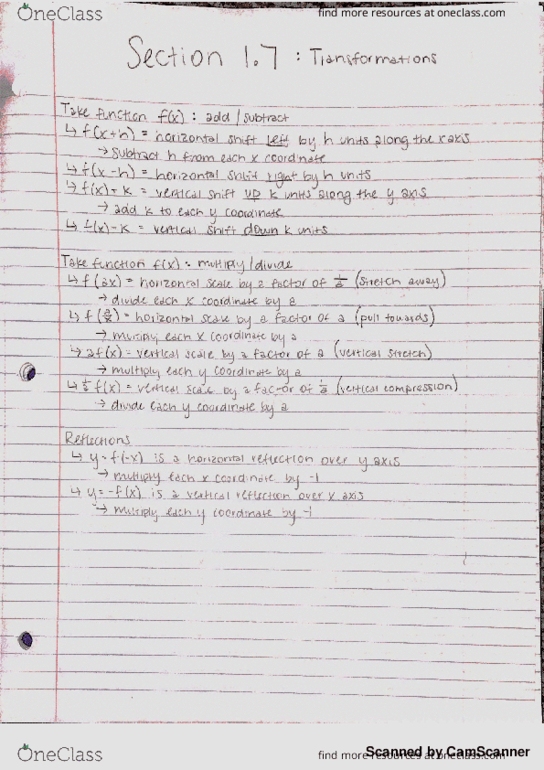 OneClass
find more resources at oneclass.com
Section 1.7 : Transformations
Take function f(x) : add / subtract
↳ f(x+h) = horizontal shift left by h units along the x axis
→ subtract h from each x coordinate
↳ f(x-h) = horizontal shift right by h units
↳ f(x)+k = vertical shift up k units along the y axis
→ add k to each y coordinate
↳ f(x)-k = vertical shift down k units
Take function f(x) : multiply / divide
↳ f(ax) = horizontal scale by a factor of 1/a (stretch away)
→ divide each x coordinate by a
↳ f(x/a) = horizontal scale by a factor of a (pull towards)
→ multiply each x coordinate by a
↳ af(x) = vertical scale by a factor of a (vertical stretch)
→ multiply each y coordinate by a
↳ 1/a f(x) = vertical scale by a factor of 1/a (vertical compression)
→ divide each y coordinate by a
Reflections
↳ y = f(-x) is a horizontal reflection over y axis
→ multiply each x coordinate by -1
↳ y = -f(x) is a vertical reflection over x axis
→ multiply each y coordinate by -1
OneClass
find more resources at oneclass.com
Scanned by CamScanner